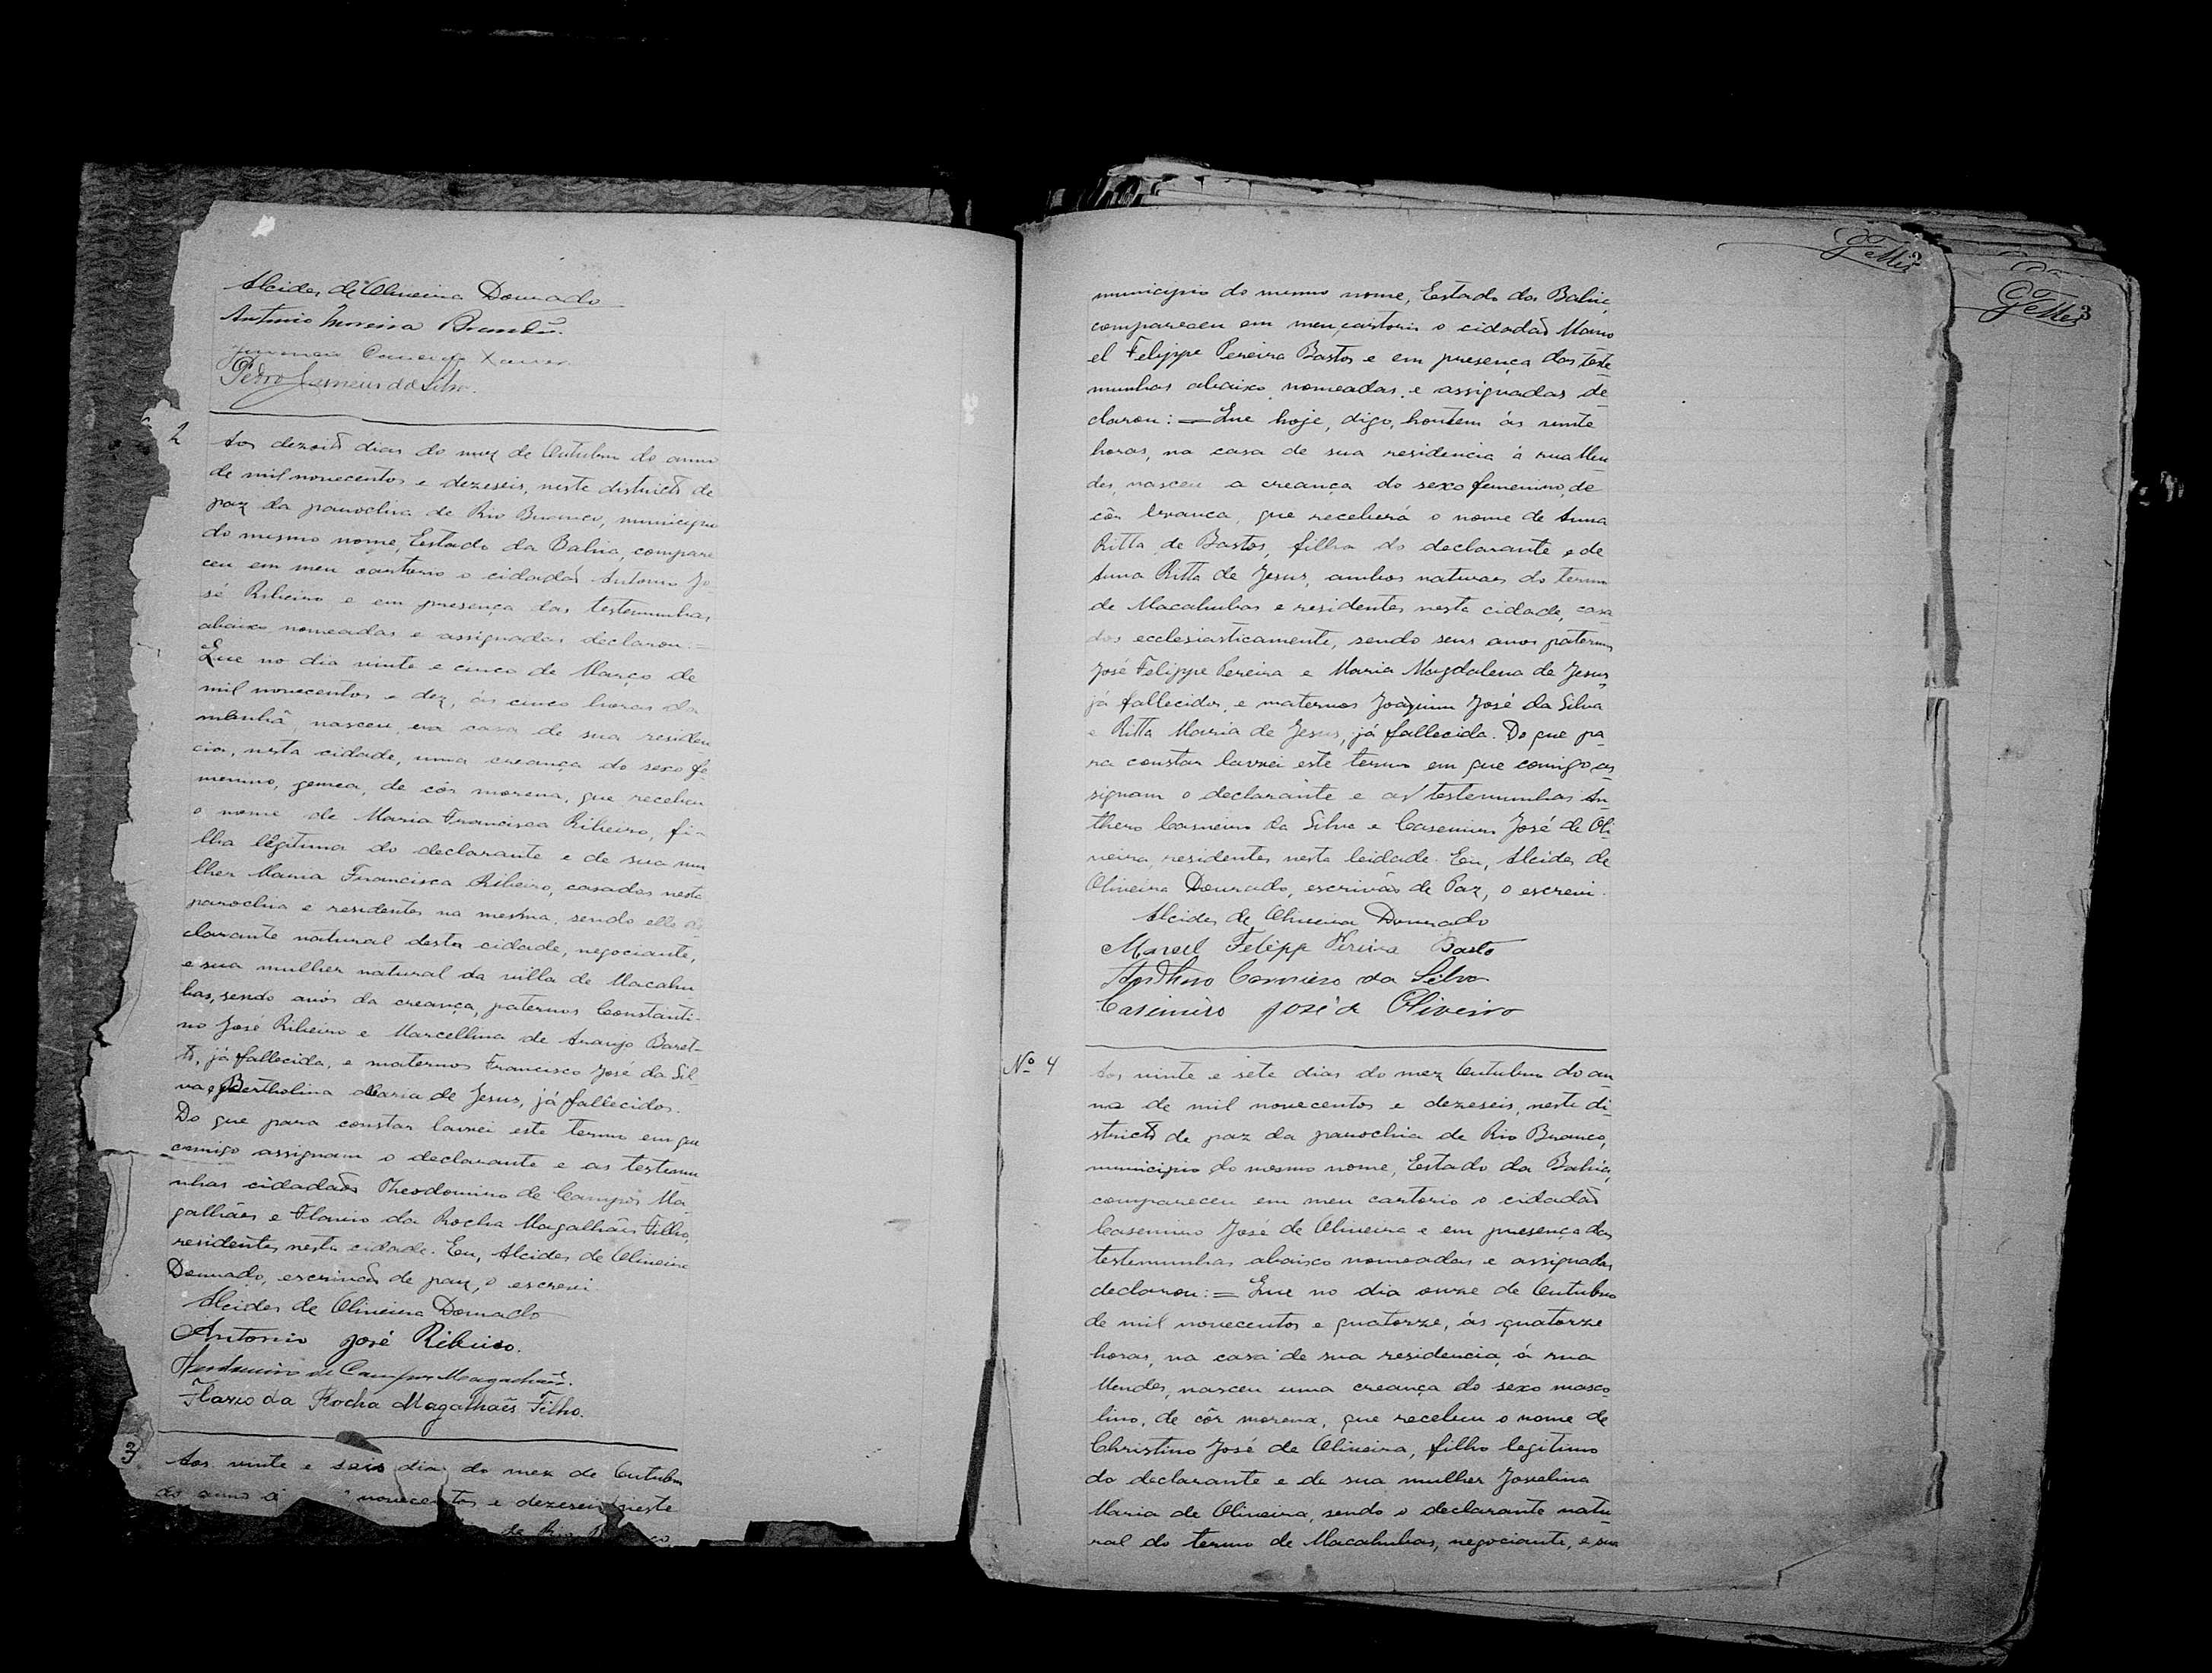 Alcides de Oliveira Dourado
Antonio Moreira Brandão.
Xavier
Pedro da Silva.
2
Aos dezoito dias do mez de Outubro do anno
de mil novecentos e dezeseis, neste districto de
paz da parochia de Rio Branco, municipio
do mesmo nome, Estado da Bahia, compare
ceu em meu cartorio o cidadão Antonio Jo
sé Ribeiro e em presença das testemunhas
abaixo nomeadas e assignadas declarou: =
Que no dia vinte e cinco de Março de
mil novecentos e dez, ás cinco horas da
manhã nasceu, em casa de sua residen
cia, nesta cidade, uma creança do sexo fe
menino, gemea, de côr morena, que recebeu
o nome de Maria Francisca Ribeiro, fi-
lha légitima do declarante e de sua mu
lher Maria Francisca Ribeiro, casados nesta
parochia e residentes na mesma, sendo elle de
clarante natural desta cidade, negociante,
e sua mulher natural da villa de Macahu
bas, sendo avós da creança, paternos Constanti-
no José Ribeiro e Marcellina de Araujo Baret-
to, já fallecida, e maternos Francisco José da Sil-
va e Bertholina Maria de Jesus, já fallecidos.
Do que para constar lavrei este termo em que
comigo assignam o declarante e as testemu
nhas cidadãos Theodomiro de Campos Ma-
galhães e Flavio da Rocha Magalhães Filho,
residentes nesta cidade. Eu, Alcides de Oliveira
Dourado, escrivão de paz, o escrevi
Alcides de Oliveira Dourado
Antonio José Ribeiro.
de Campos Magalhães.
Flavio da Rocha Magalhães Filho.
3
Aos vinte e seis dias do mez de Outubro
do anno novecentos e dezeseis neste
de Rio
2
3
municipio do mesmo nome, Estado da Bahia,
compareceu em meu cartorio o cidadão Mano
el Felippe Pereira Bastos e em presença das teste
munhas abaixo nomeadas e assignadas de
clarou: = Que hoje, digo, hontem ás vinte
horas, na casa de sua residencia á rua Men
des, nasceu a creança do sexo femenino, de
côr branca, que receberá o nome de Anna
Ritta de Bastos, filha do declarante e de
Anna Ritta de Jesus, ambos naturaes do termo
de Macahubas e residentes nesta cidade, casa
dos ecclesiasticamente, sendo seus avós paternos
José Felippe Pereira e Maria Magdalena de Jesus,
já fallecidos, e maternos Joaquim José da Silva
e Ritta Maria de Jesus, já fallecida. Do que pa-
ra constar lavrei este termo em que comigo as
signam o declarante e as testemunhas An-
thero Carneiro da Silva e Casemiro José de Oli-
veira residentes nesta Cidade. Eu, Alcides de
Oliveira Dourado, escrivão de Paz, o escrevi.
Alcides de Oliveira Dourado
Manoel Felipp Pereira Basto
Carneiro da Silva
Casimiro José de Oliveira
Nº 4
Aos vinte e sete dias do mez Outubro do an
no de mil novecentos e dezeseis, neste di
stricto de paz da parochia de Rio Branco,
municipio do mesmo nome, Estado da Bahia,
compareceu em meu cartorio o cidadão
Casemiro José de Oliveira e em presença das
testemunhas abaixo nomeadas e assignadas
declarou: = Que no dia onze de Outubro
de mil novecentos e quatorze, ás quatorze
horas, na casa de sua residencia, á rua
Mendes, nasceu uma creança do sexo mascu
lino, de côr morena, que recebeu o nome de
Christino José de Oliveira, filho legitimo
do declarante e de sua mulher Jovelina
Maria de Oliveira, sendo o declarante natu
ral do termo de Macahubas, negociante, e sua